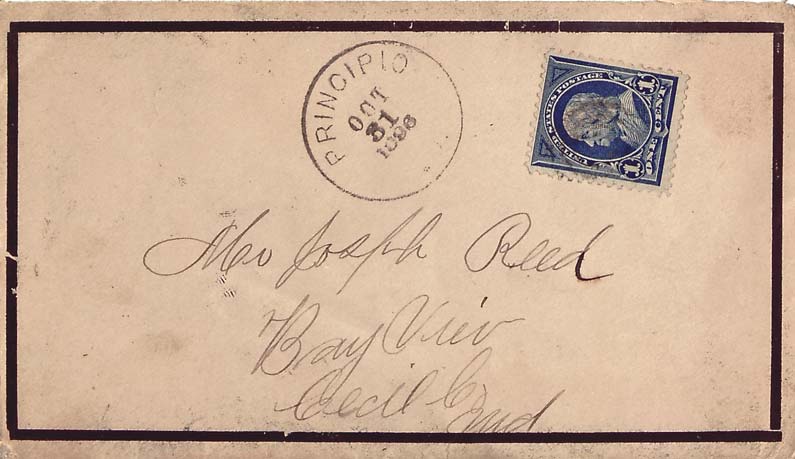 PRINCIPIO
OCT
31
1896
UNITED STATES POSTAGE
1 1
ONE CENT
Mr Joseph Reed
Bay View
Cecil Co Md